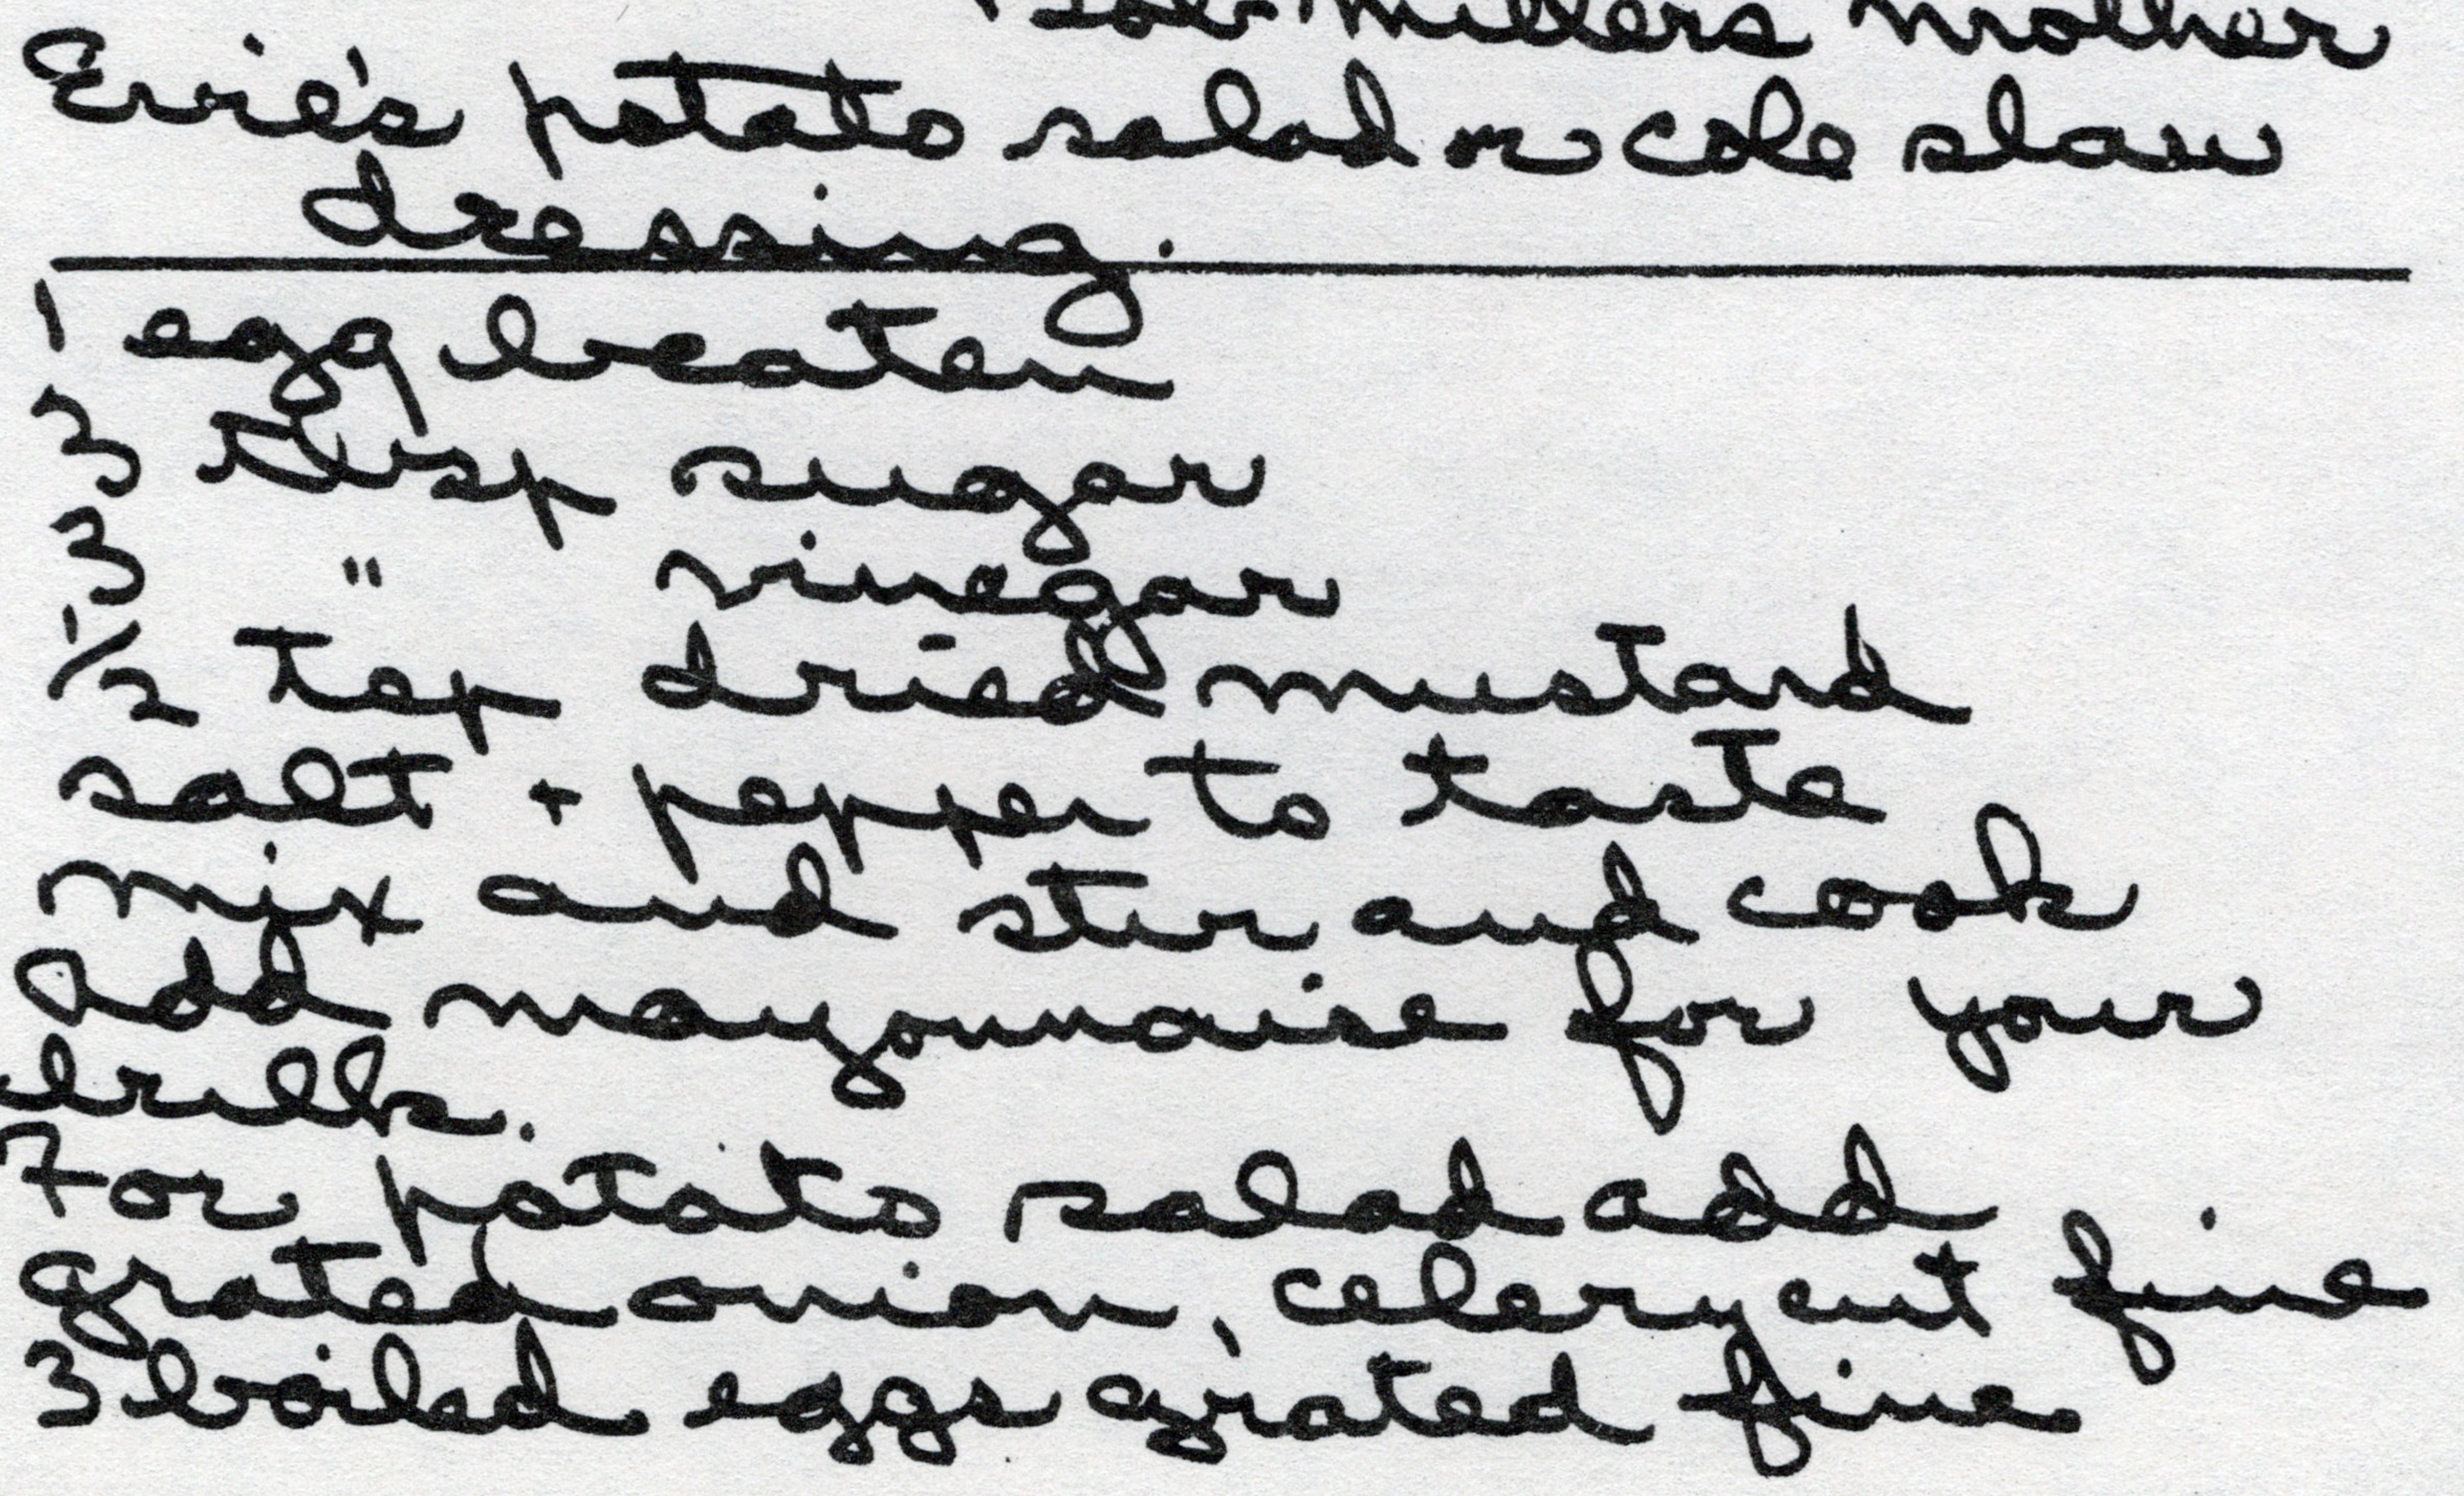 Bob Millers mother
Evie's potato salad or cole slaw
dressing.
1 egg beaten
3 tbsp sugar
3 " vinegar
1/2 tsp dried mustard
salt + pepper to taste
mix and stir and cook
Add mayonnaise for your
bulk.
For potato salad add
grated onion, celery cut fine
3 boiled eggs grated fine